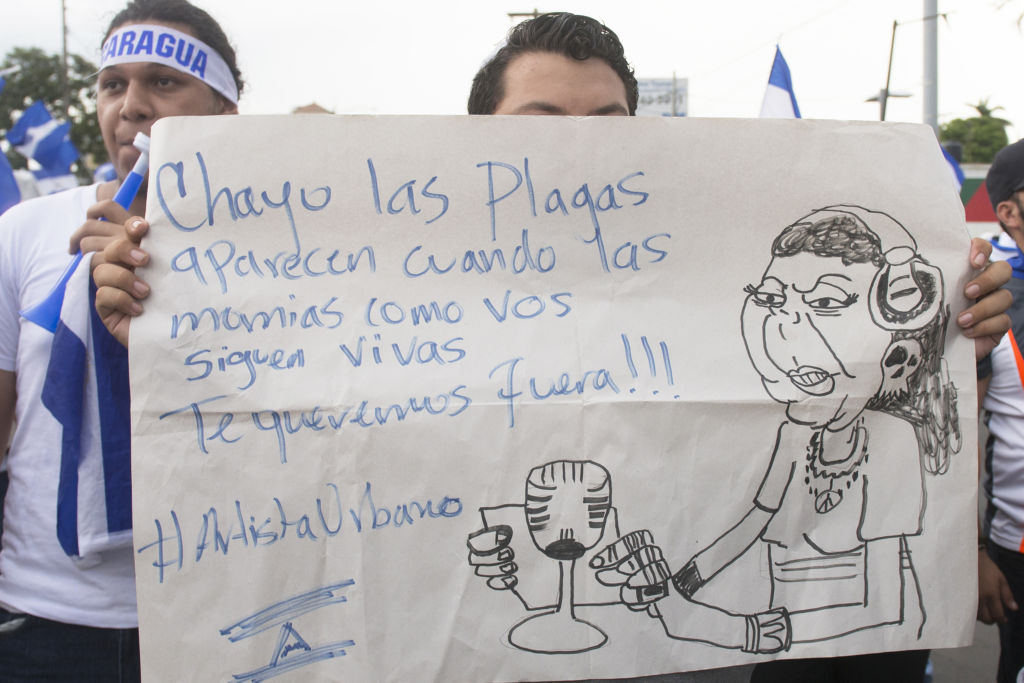 CARAGUA
Chayo las Plagas
aparecen cuando las
momias como vos
siguen vivas
Te queremos fuera!!!
#ArtistaUrbano